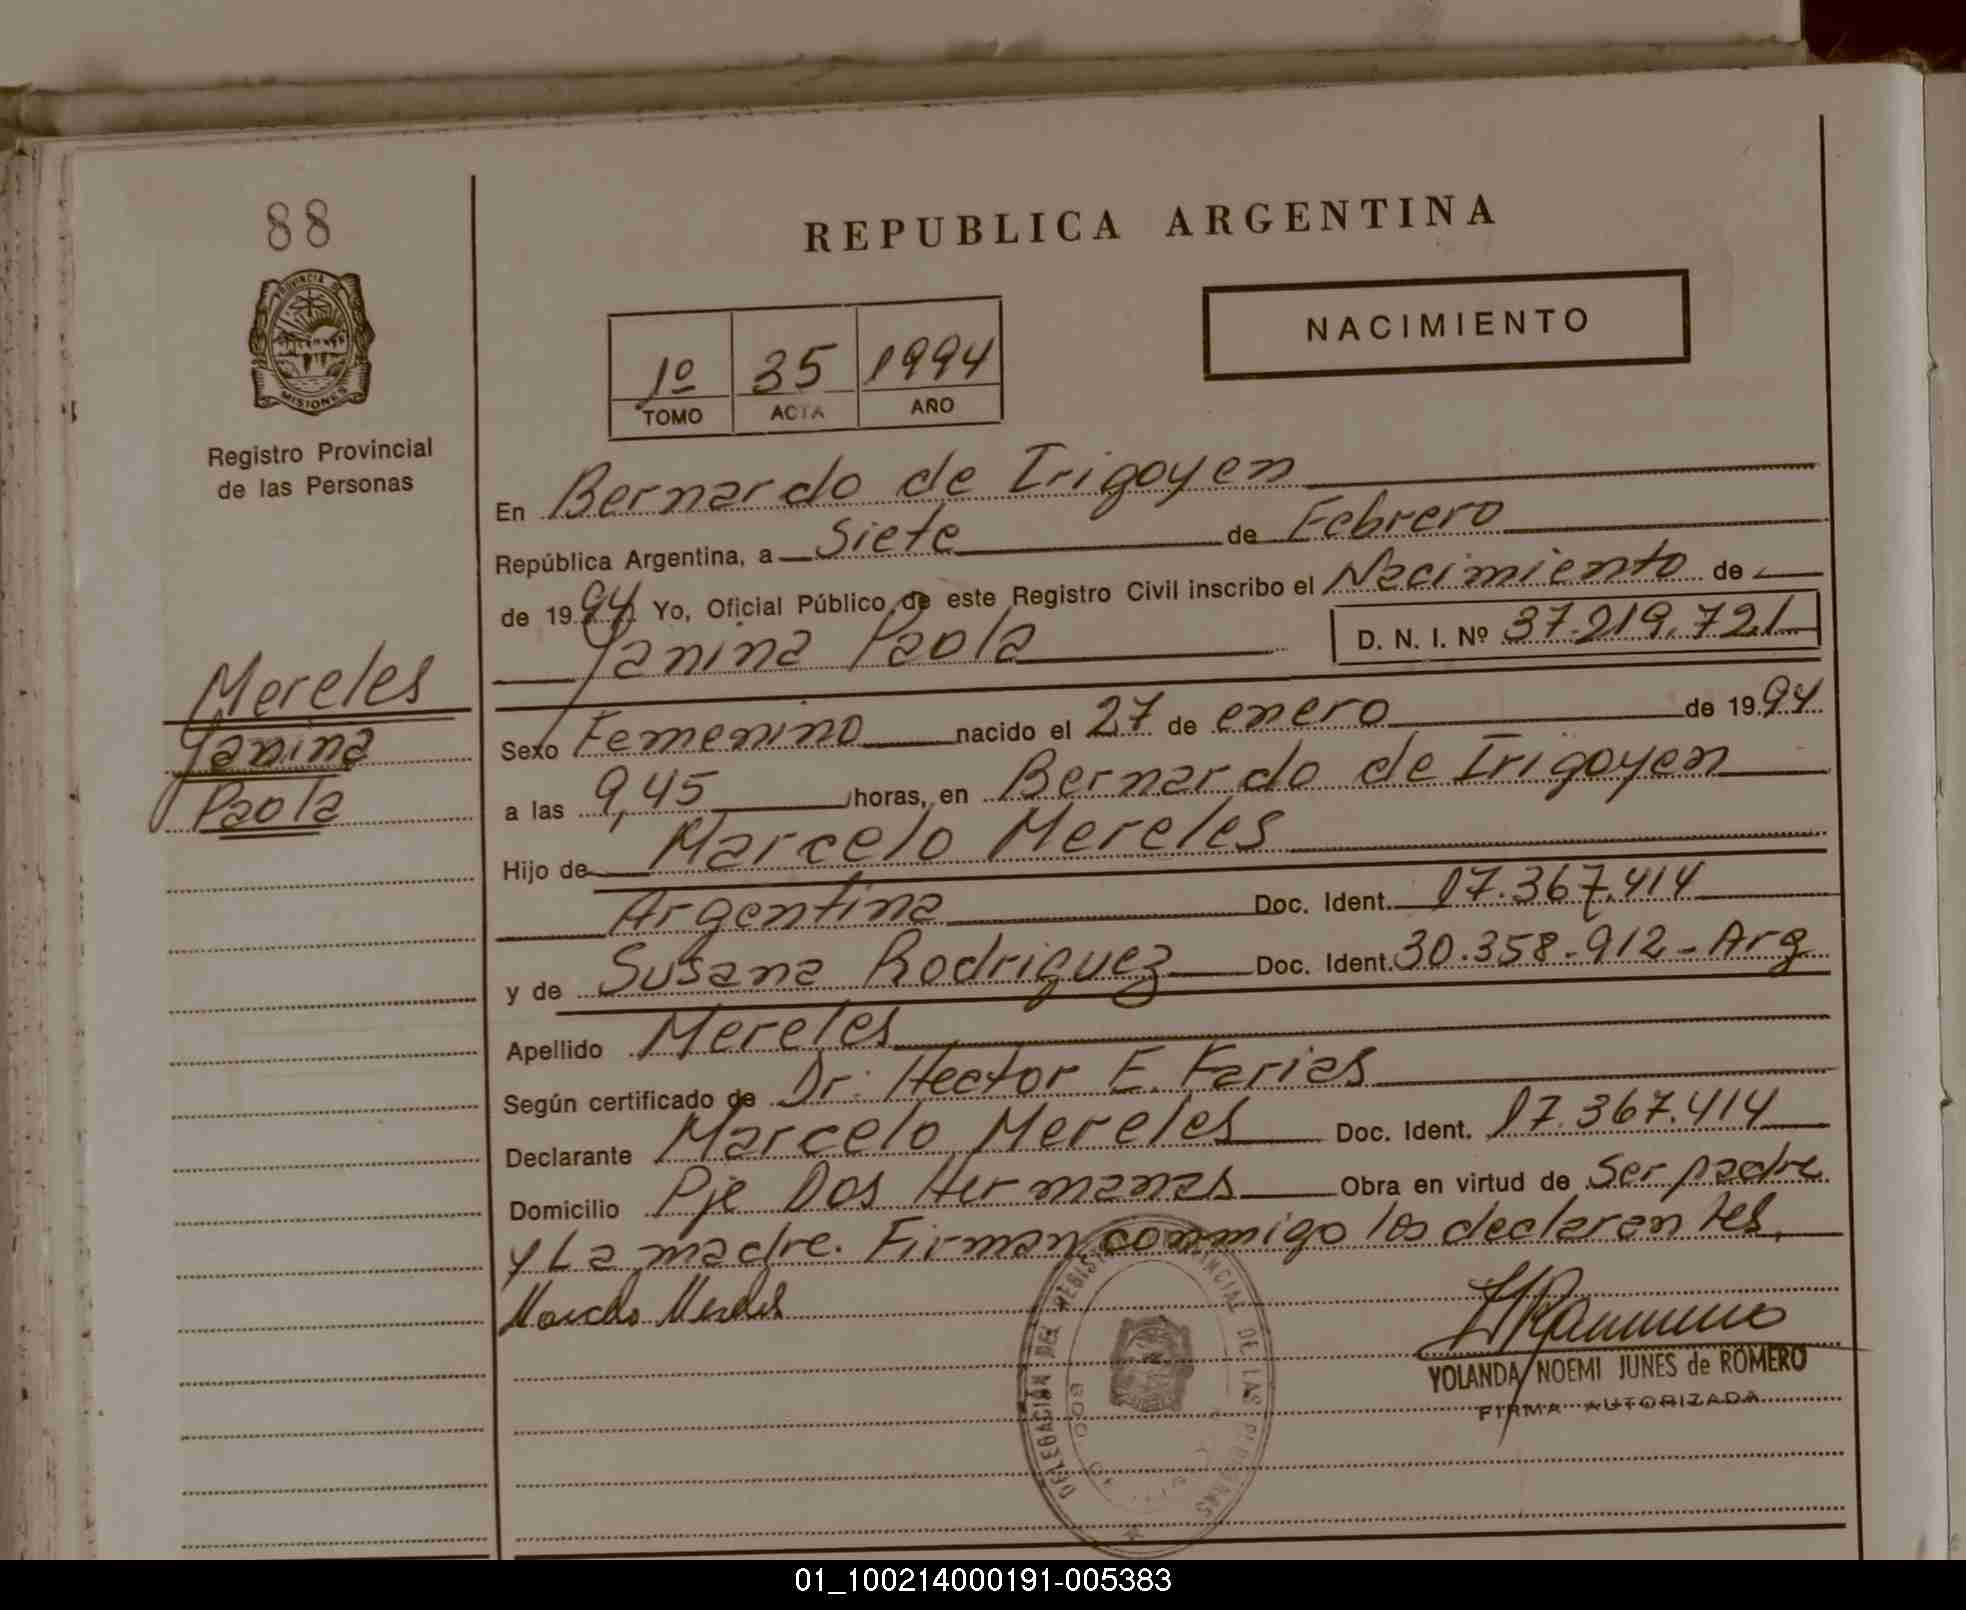 88
PROVINCIA DE
MISIONES
Registro Provincial
de las Personas
Mereles
Yanina
Paola
REPUBLICA ARGENTINA
NACIMIENTO
1º 35 1994
TOMO ACTA AÑO
En Bernardo de Irigoyen
República Argentina, a Siete de Febrero
de 1994 Yo, Oficial Público de este Registro Civil inscribo el Nacimiento de
Yanina Paola D. N. I. Nº 37.219.721
Sexo Femenino nacido el 27 de enero de 1994
a las 9,45 horas, en Bernardo de Irigoyen
Hijo de Marcelo Mereles
Argentina Doc. Ident. 17.367.414
y de Susana Rodriguez Doc. Ident. 30.358.912 - Arg
Apellido Mereles
Según certificado de Dr. Hector E. Farias
Declarante Marcelo Mereles Doc. Ident. 17.367.414
Domicilio Pje Dos Hermanas Obra en virtud de Ser padre
y La madre. Firman conmigo los declarantes.
Marcelo Mereles
DELEGACIÓN DEL REGISTRO PROVINCIAL DE LAS PERSONAS
YOLANDA NOEMI JUNES de ROMERO
FIRMA AUTORIZADA
01_100214000191-005383